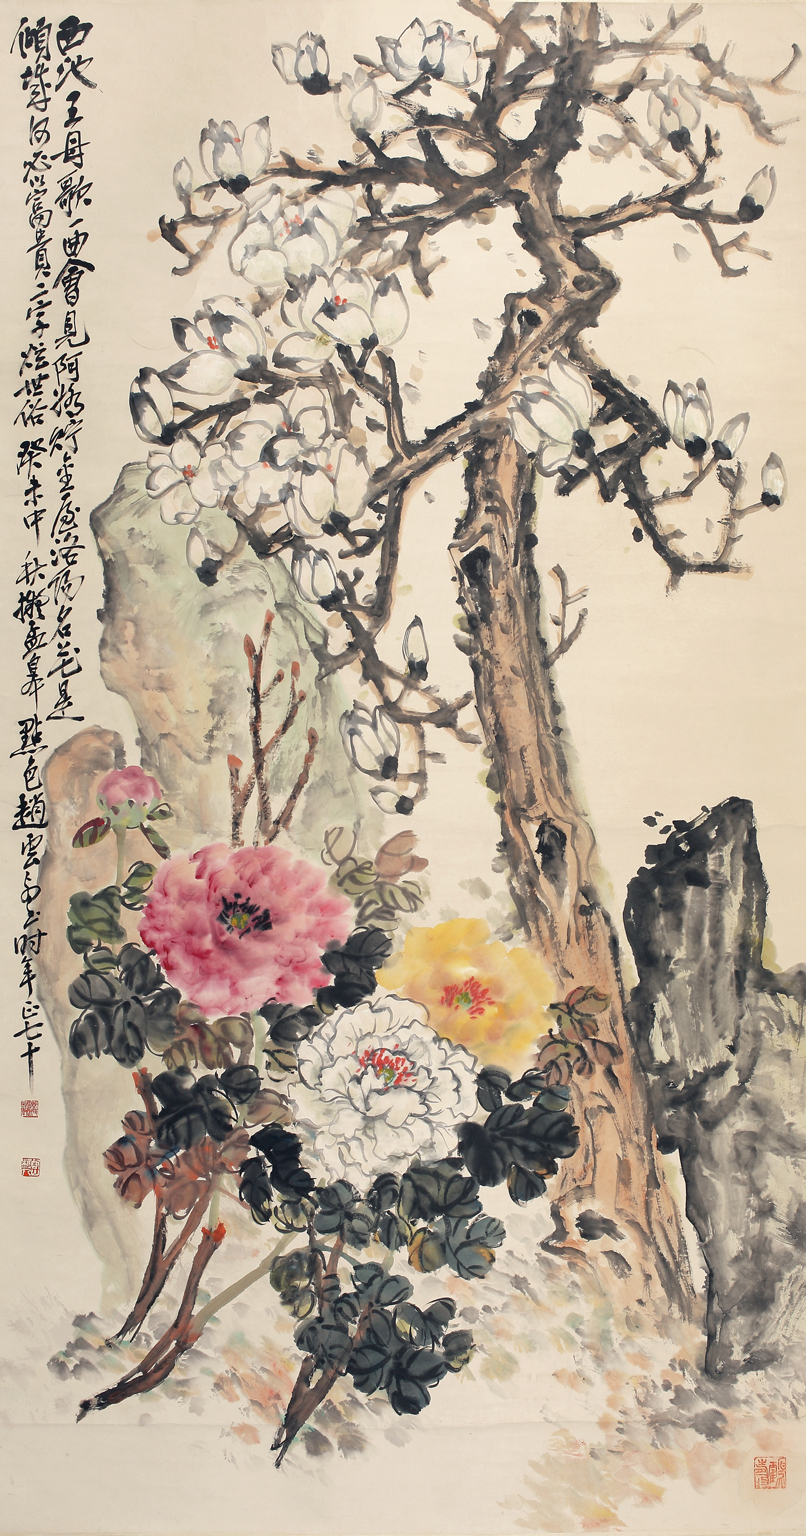 西池王母歌一曲會見阿嬌貯金屋洛陽名花是
傾城何必富貴二字炫世俗 癸未中秋擬孟皋點色趙雲壑時年正七十